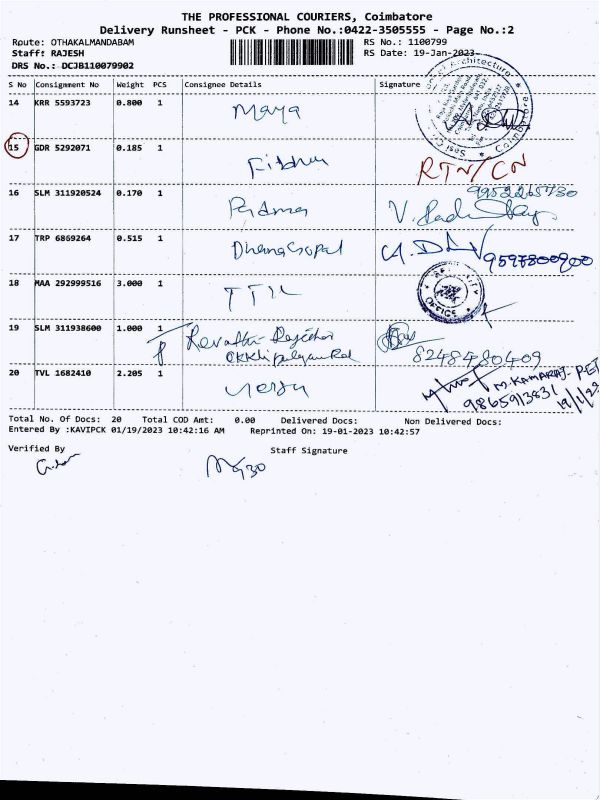 THE PROFESSIONAL COURIERS, Coimbatore
Delivery Runsheet - PCK - Phone No.:0422-3505555 - Page No.:2
Route: OTHAKALMANDABAM RS No.: 1100799
Staff: RAJESH RS Date: 19-Jan-2023
DRS No.: DCJB110079902
S No Consignment No Weight PCS Consignee Details Signature
14 KRR 5593723 0.800 1 Maya
15 GDR 5292071 0.185 1 RTN/CN
16 SLM 311920524 0.170 1 Padma 9952265730
17 TRP 6869264 0.515 1 Dhanagopal 9597800900
18 MAA 292999516 3.000 1 OFFICE
19 SLM 311938600 1.000 1 Revathi 8248480409
20 TVL 1682410 2.205 1 M.KAMARAJ-PET
9865913831 19/1/23
Total No. Of Docs: 20 Total COD Amt: 0.00 Delivered Docs: Non Delivered Docs:
Entered By :KAVIPCK 01/19/2023 10:42:16 AM Reprinted On: 19-01-2023 10:42:57
Verified By Staff Signature